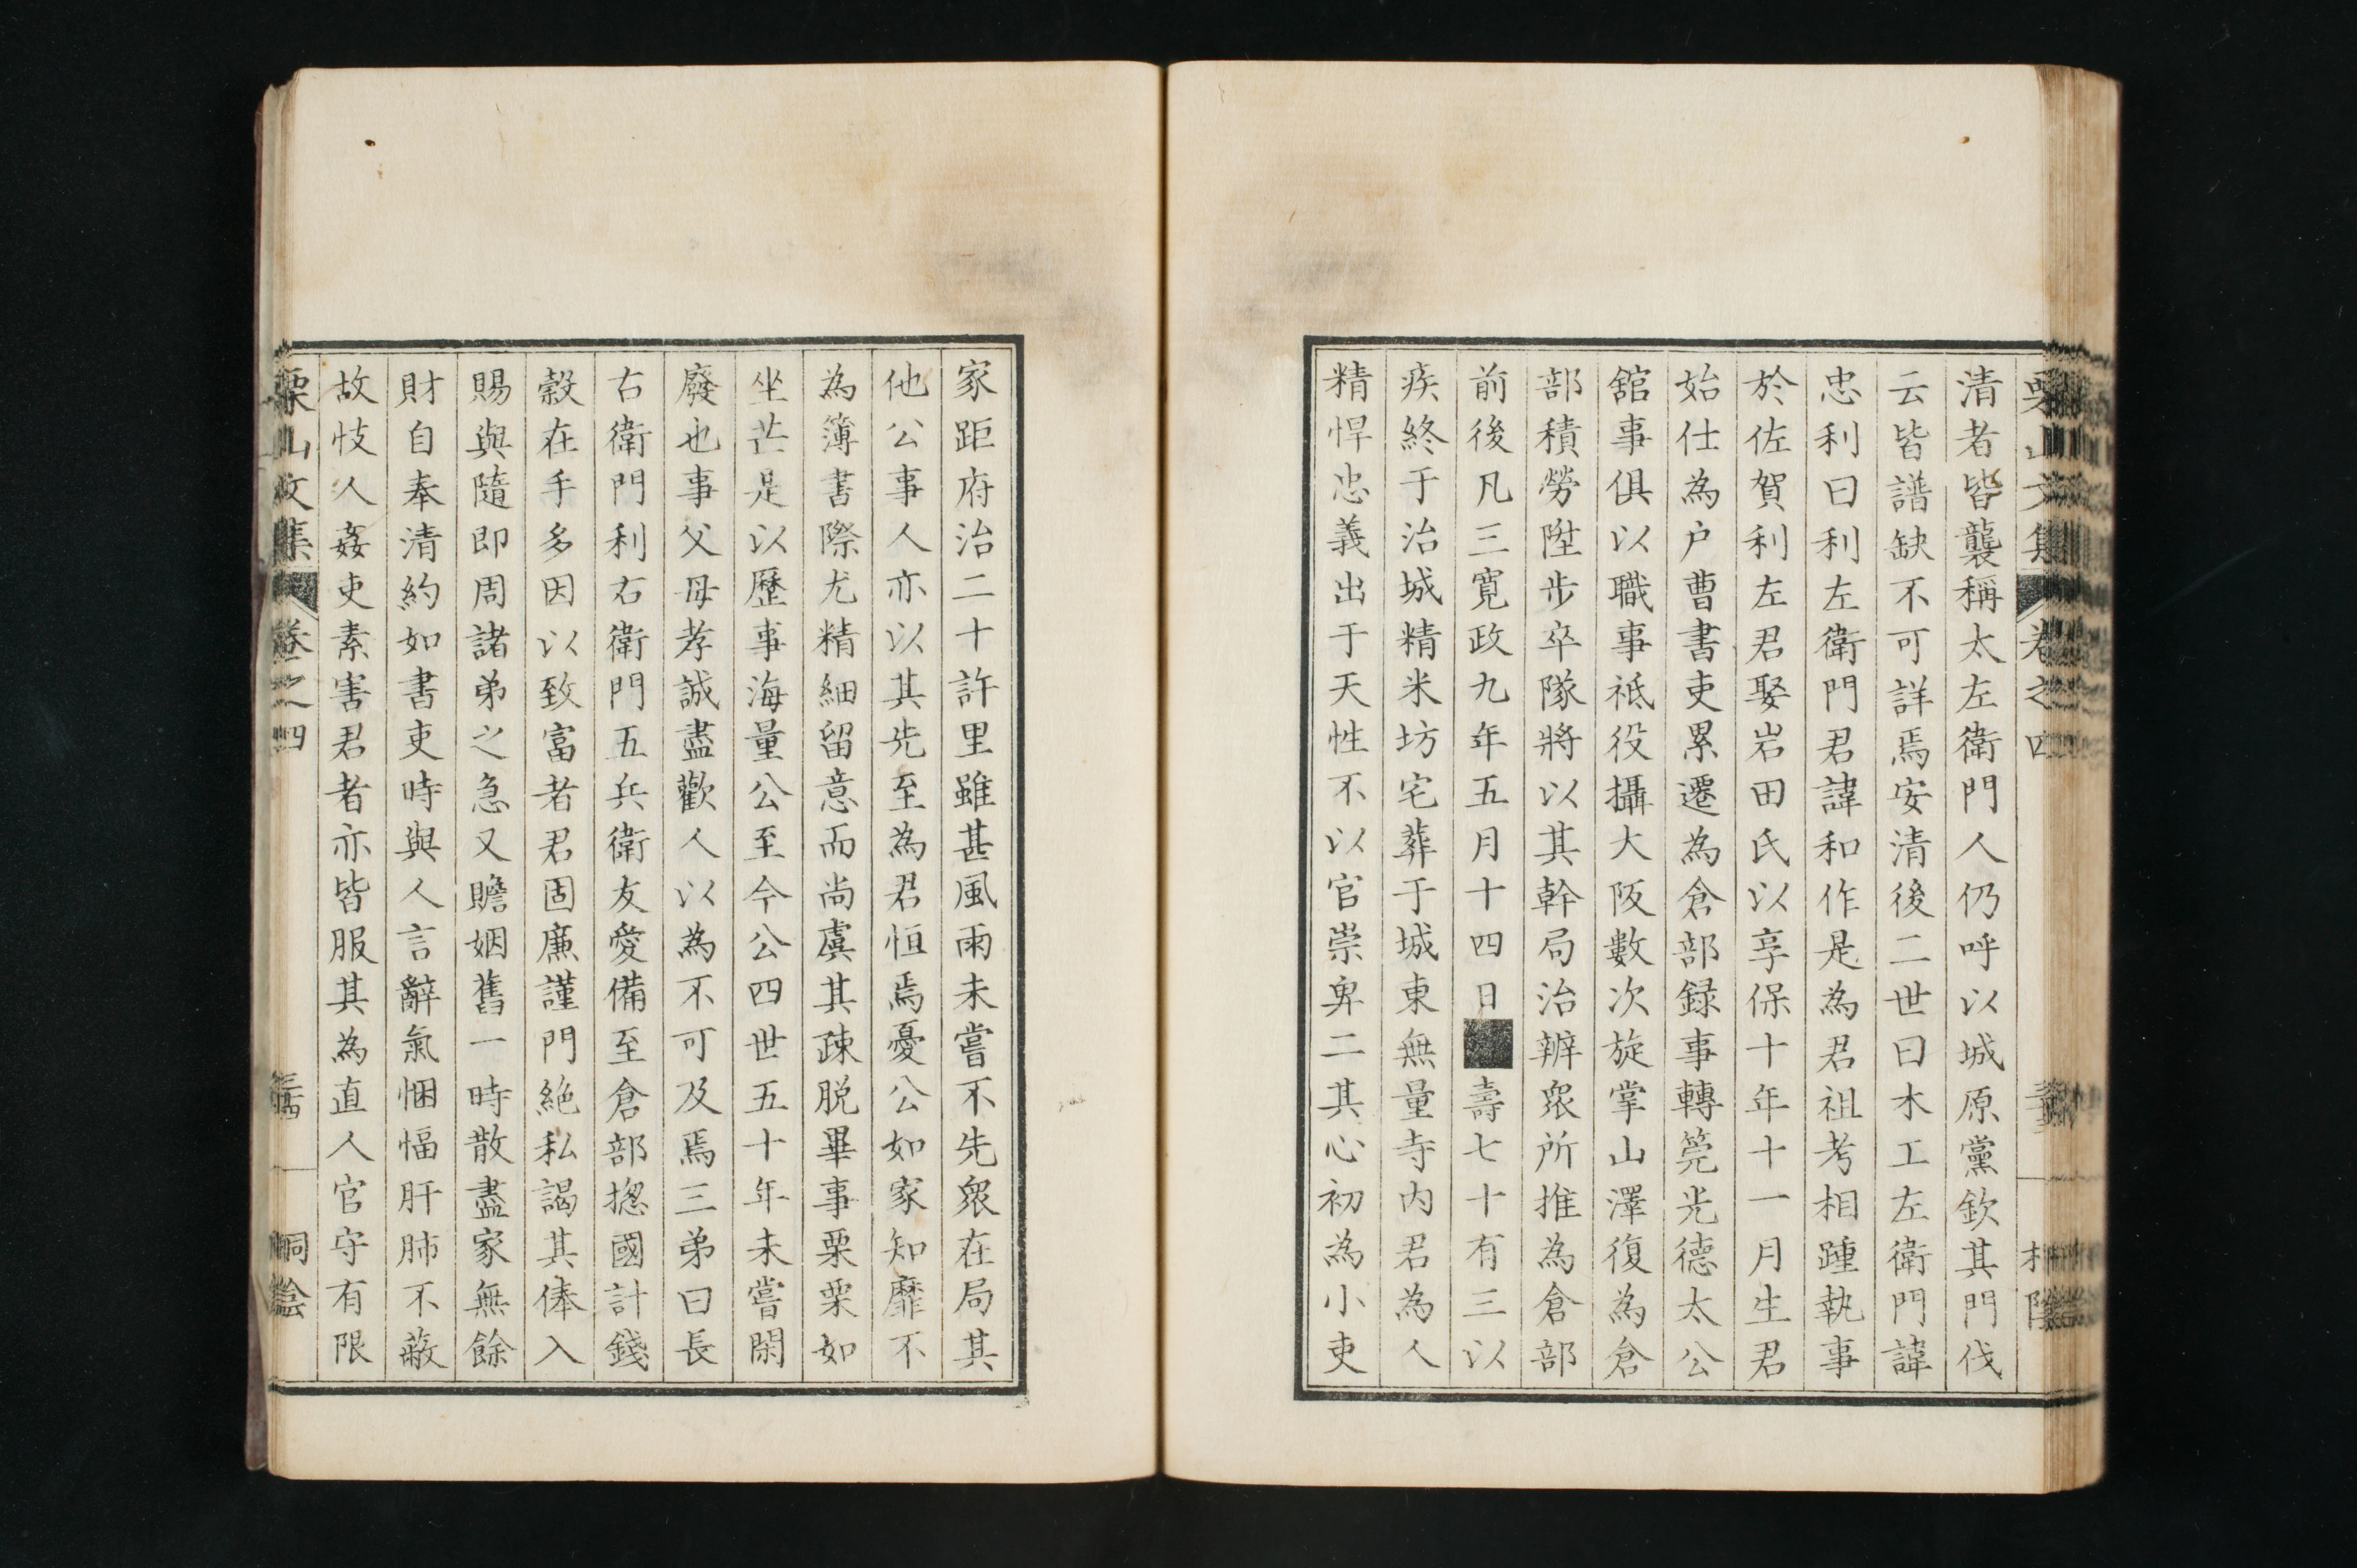 清者皆襲稱太左衛門人仍呼以城原黨欽其門伐
云皆譜缺不可詳焉安清後二世曰木工左衛門諱
忠利曰利左衛門君諱和作是為君祖考相踵執事
於佐賀利左君娶岩田氏以享保十年十一月生君
始仕為户曹書吏累遷為倉部録事轉筦光德太公
舘事俱以職事祗役攝大阪數次旋掌山澤復為倉
部積勞陞步卒隊將以其幹局治辦衆所推為倉部
前後凡三寬政九年五月十四日壽七十有三以
疾終于治城精米坊宅葬于城東無量寺内君為人
精悍忠義出于天性不以官崇卑二其心初為小吏
家距府治二十許里雖甚風雨未嘗不先衆在局其
他公事人亦以其先至為君恒焉憂公如家知靡不
為簿書際尤精細留意而尚虞其疎脱畢事栗栗如
坐芒是以歷事海量公至今公四世五十年未嘗閑
廢也事父母孝誠盡歡人以為不可及焉三弟曰長
右衛門利右衛門五兵衛友愛備至倉部揔國計錢
穀在手多因以致富者君固廉謹門絶私謁其俸入
賜與隨即周諸弟之急又贍姻舊一時散盡家無餘
財自奉清約如書吏時與人言辭氣悃愊肝肺不蔽
故忮人姦吏素害君者亦皆服其為直人官守有限
栗山文集 卷之四